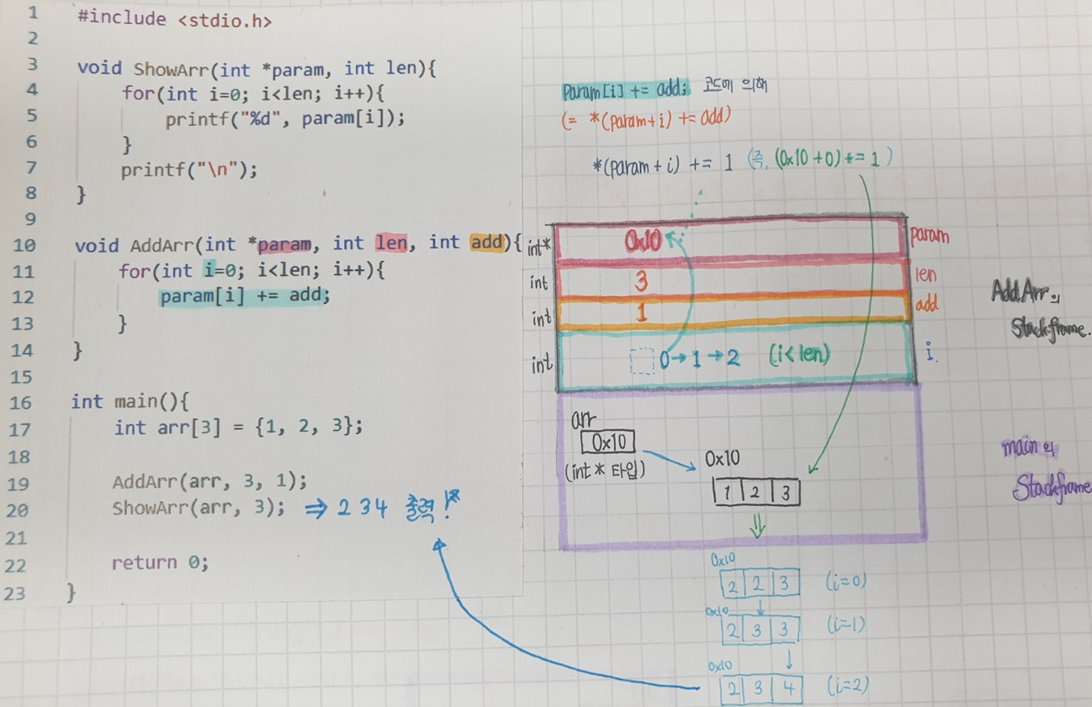 1 #include <stdio.h>
2
3 void ShowArr(int *param, int len){
4 for(int i=0; i<len; i++){
5 printf("%d", param[i]);
6 }
7 printf("\n");
8 }
9
10 void AddArr(int *param, int len, int add){
11 for(int i=0; i<len; i++){
12 param[i] += add;
13 }
14 }
15
16 int main(){
17 int arr[3] = {1, 2, 3};
18
19 AddArr(arr, 3, 1);
20 ShowArr(arr, 3); ⇒ 2 3 4 출력!*
21
22 return 0;
23 }
param[i] += add; 코드에 의해
(= *(param+i) += add)
*(param+i) += 1 (즉, (0x10+0) += 1)
int* 0x10 param
int 3 len
int 1 add
int 0→1→2 (i<len) i.
AddArr의
Stackframe.
arr
0x10
(int* 타입)
0x10
1 2 3
main의
Stackframe
0x10
2 2 3 (i=0)
0x10
2 3 3 (i=1)
0x10
2 3 4 (i=2)